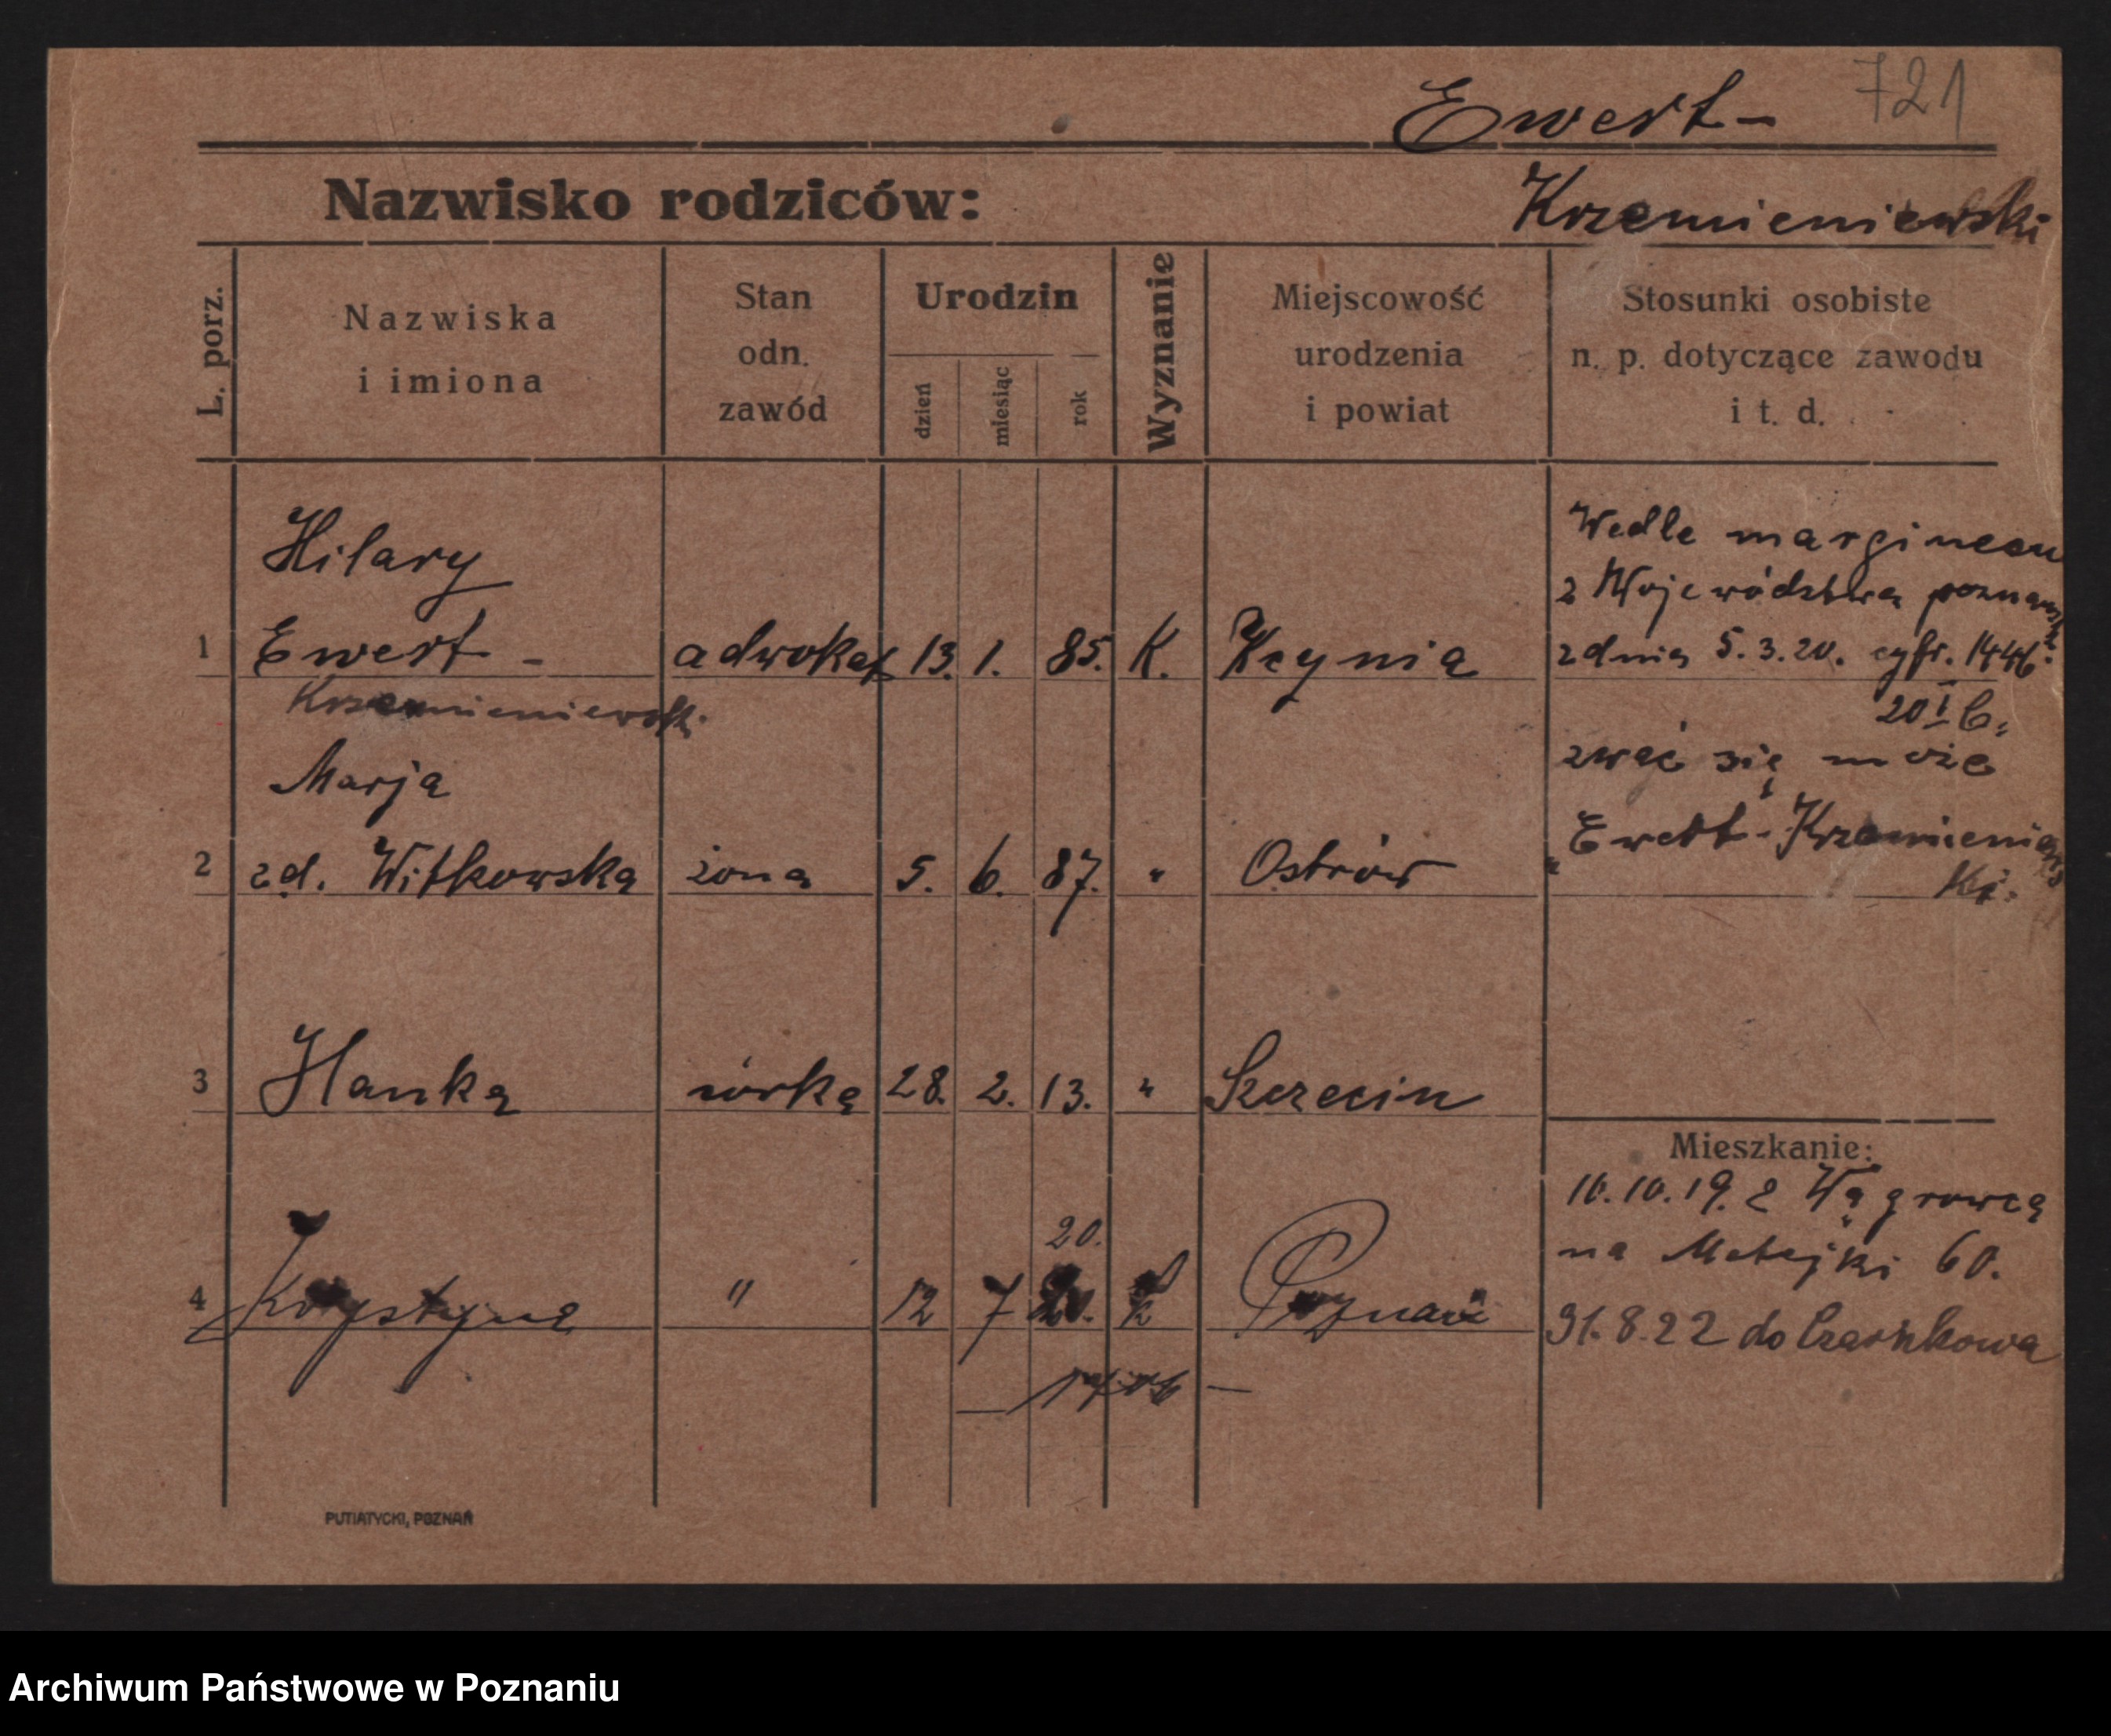 721
Ewert-
Krzemieniewski
Nazwisko rodziców:
L. porz.
Nazwiska
i imiona
Stan
odn.
zawód
Urodzin
dzień
miesiąc
rok
Wyznanie
Miejscowość
urodzenia
i powiat
Stosunki osobiste
n. p. dotyczące zawodu
i t. d.
Hilary
1 Ewert - adwokat 13. 1. 85. K. Kcynia
Krzemieniewski
Marja
2 zd. Witkowska żona 5. 6. 87. " Ostrów
3 Hanka córka 28. 2. 13. " Szczecin
20.
4 Krystyna " 12 7 20. k Poznań
Wedle
z Województwa
z dnia 5.3.20. cyfr. 1446.
20 I b.
zwać się może
"Ewert-Krzemieniews
ki".
Mieszkanie:
10.10.19. z Wągrowca
na Matejki 60.
31.8.22 do Czarnkowa
PUTIATYCKI, POZNAŃ
Archiwum Państwowe w Poznaniu